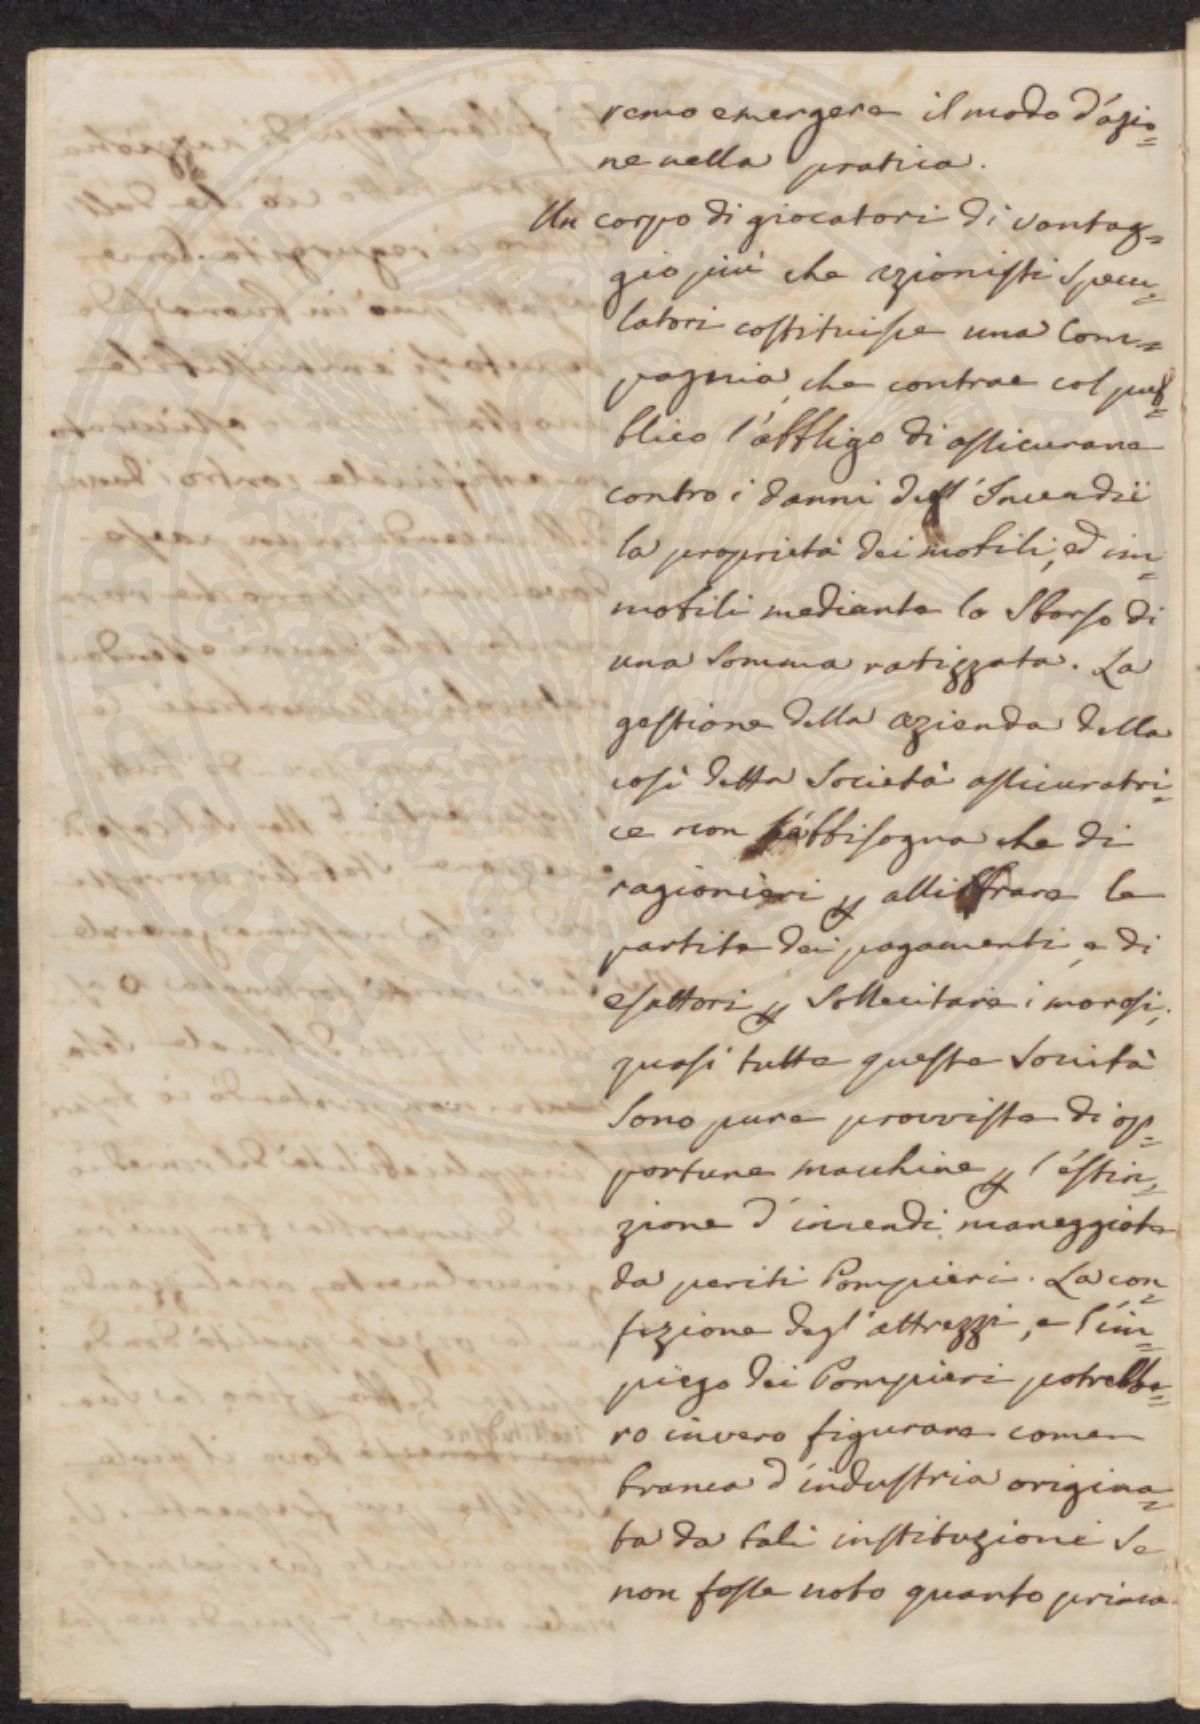 remo emergere il modo d'azio=
ne nella pratica.
Un corpo di giocatori di vantag=
gio più che azionisti specu=
latori costituisce una Com=
pagnia, che contrae col pub=
blico l'obbligo di assicurare
contro i danni dell'Incendii
la proprietà dei mobili, ed im=
mobili mediante lo sborso di
una somma ratizzata. La
gestione della azienda della
così detta Società assicuratri=
ce non abbisogna che di
ragionieri allistrare le
partite dei pagamenti, e di
esattori sollecitare i morosi,
quasi tutte queste Società
sono pure provviste di op=
portune macchine l'estin=
zione d'incendi maneggiate
da periti Pompieri. La con=
fezione degl'attrezzi, e l'im=
piego dei Pompieri potrebbe=
ro invero figurare come
branca d'industria origina=
ta da tali instituzioni se
non fosse noto quanto prima